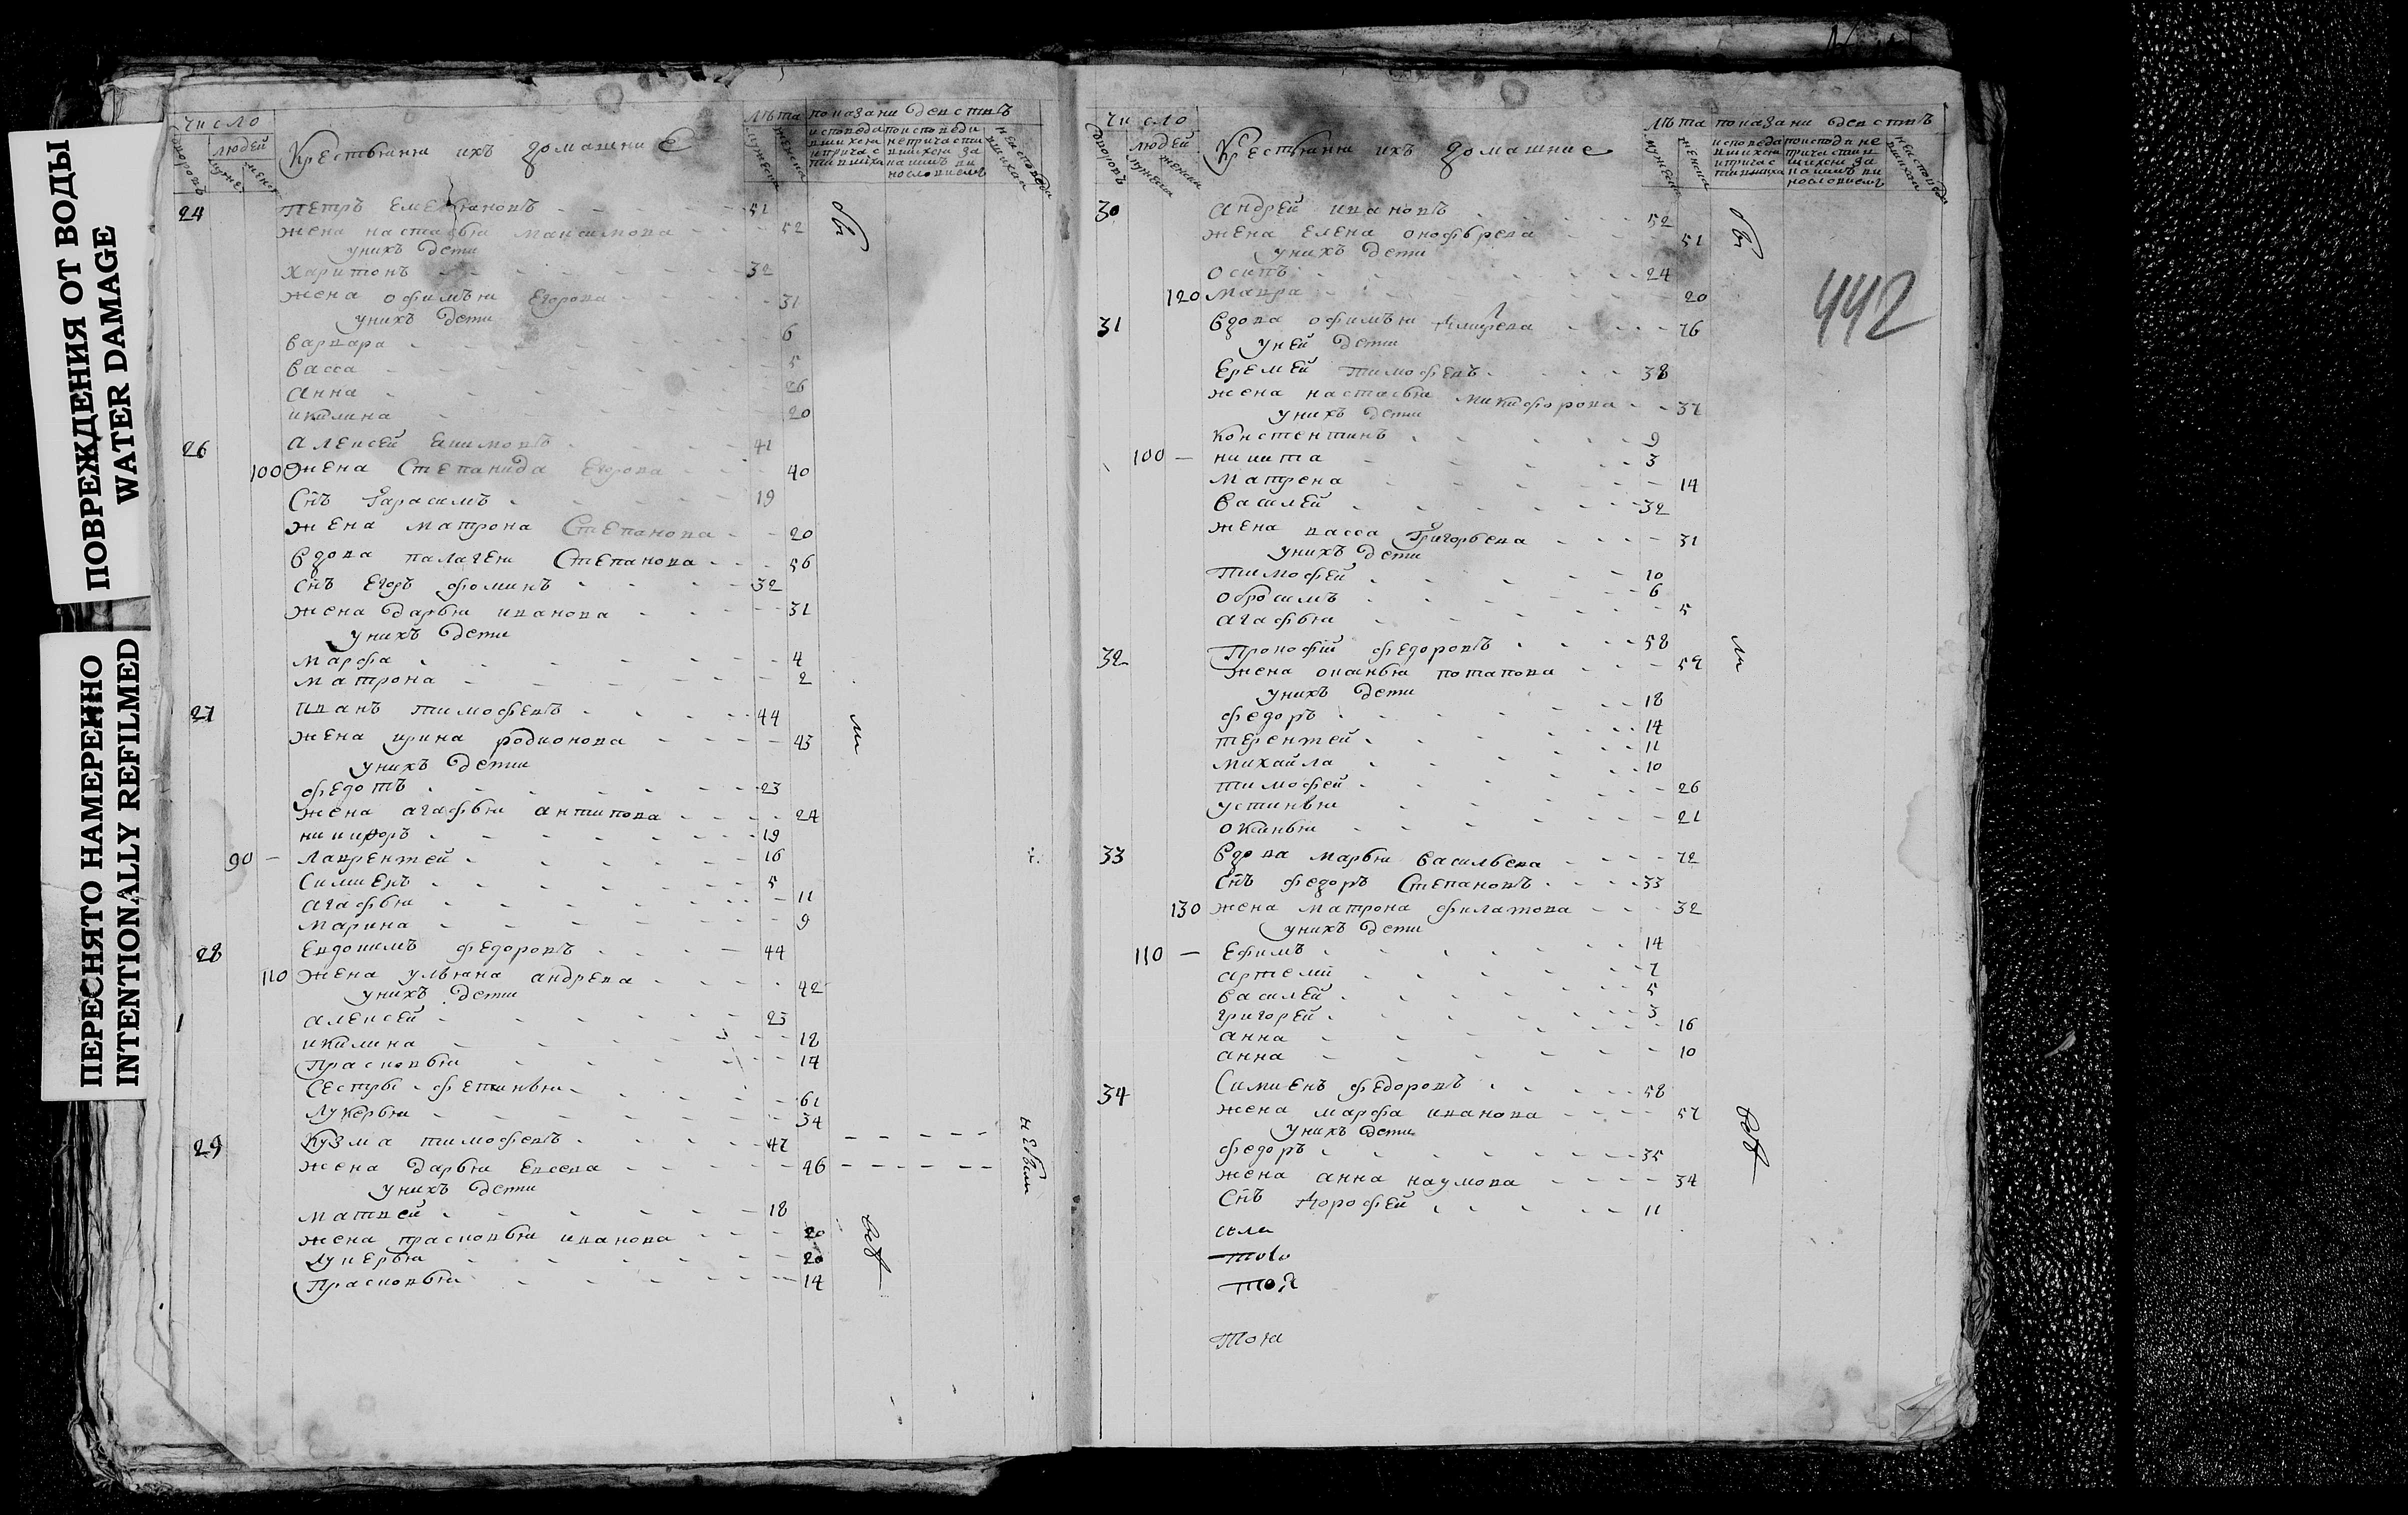 ПОВРЕЖДЕНИЯ ОТ ВОДЫ
WATER DAMAGE
ПЕРЕСНЯТО НАМЕРЕННО
INTENTIONALLY REFILMED
число
людей
Крестьяня ихъ домашние
лѣта показани действъ
24 Петръ Емельяновъ 51
жена настасья максимова 52
у нихъ дети
харитонъ 32
жена офимья Егорова 31
у нихъ дети
варвара 6
васса 5
анна 26
икилина 20
26 алексей Екимовъ 41
100 жена Степанида Егорова 40
Снъ Гарасимъ 19
жена матрона Степанова 20
вдова палагея Степанова 56
снъ Егоръ фоминъ 32
жена дарья иванова 31
у нихъ дети
марфа 4
матрона 2
27 иванъ тимофевъ 44
жена ирина родионова 43
у нихъ дети
федотъ 23
жена агафья антипова 24
никифоръ 19
90 лаврентей 16
Симиенъ 5
агафья 11
марина 9
28 Евдокимъ федоровъ 44
110 жена ульяна андрева 42
у нихъ дети
алексей 23
икилина 18
Прасковья 14
сестры фетинья 61
лукерья 34
29 Кузма тимофевъ 47
жена дарья Евсева 46
у нихъ дети
матвей 18
жена прасковья иванова 20
лукерья 20
Прасковья 14
число
людей
Крестьяня ихъ домашние
лѣта показани действъ
442
30 андрей ивановъ 52
жена Елена онофрева 51
у нихъ дети
осипъ 24
120 мавра 20
31 вдова офимья 76
у ней дети
Еремей тимофевъ 38
жена настасья микифорова 37
у нихъ дети
Констентинъ 9
100 никита 3
матрена 14
василей 32
жена васса Григорьева 31
у нихъ дети
тимофей 10
обросимъ 6
агафья 5
32 Прокофий федоровъ 58
жена оксинья потапова 59
у нихъ дети
федоръ 18
терентей 14
михайла 11
тимофей 10
устинья 26
оксинья 21
33 вдова марья васильева 72
снъ федоръ Степановъ 33
130 жена матрона филатова 32
у нихъ дети
110 Ефимъ 14
артемий 7
василей 5
григорей 3
анна 16
анна 10
34 Симиенъ федоровъ 58
жена марфа иванова 57
у нихъ дети
федоръ 35
жена анна наумова 34
снъ дорофей 11